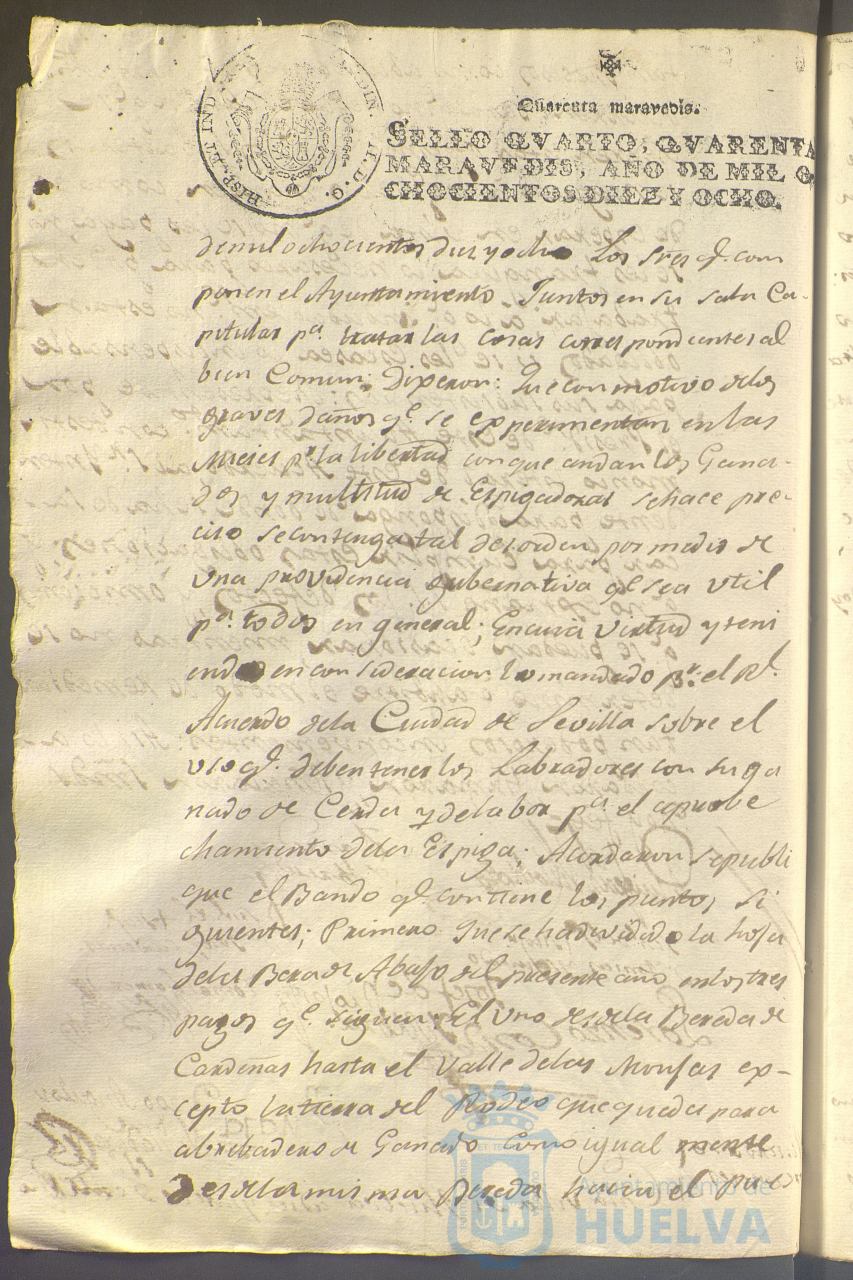 HISP. ET IND
Quarenta maravedis.
SELLO QVARTO, QVARENTA
MARAVEDIS, AÑO DE MIL O
CHOCIENTOS DIEZ Y OCHO.
demil ochocientos diez y ocho Los Sres. q.e com
ponen el Ayuntamiento Juntos en su sala Ca-
pitular pa. tratar las cosas correspondientes al
bien Comun; Dixeron: Que con motivo delos
graves daños q.e se experimentan en las
Mieses pr. la libertad con que andan los Gana-
dos y multitud de Espigadoras se hace pre-
ciso se contenga tal desorden por medio de
una providencia gubernativa q.e sea util
pa. todos en general; En cuia virtud y teni
endo en consideracion lo mandado pr. el Rl.
Acuerdo dela Ciudad de Sevilla sobre el
uso q.e deben tener los Labradores con su ga
nado de Cerda y de labor pa. el aprobe
chamiento dela Espiga; Acordaron se publi
que el Bando q.e contiene los puntos si
guientes; Primero que se ha dividido la hoja
dela Bera de Abajo del presente año en los tres
pagos q.e siguen; El Uno desde la Bereda de
Cardeñas hasta el Valle delas Monjas ex-
cepto la tierra del Rodeo que queda para
abrebadero de Ganado como igualmente
Desde la misma Bereda hacia el
Ayuntamiento de
HUELVA